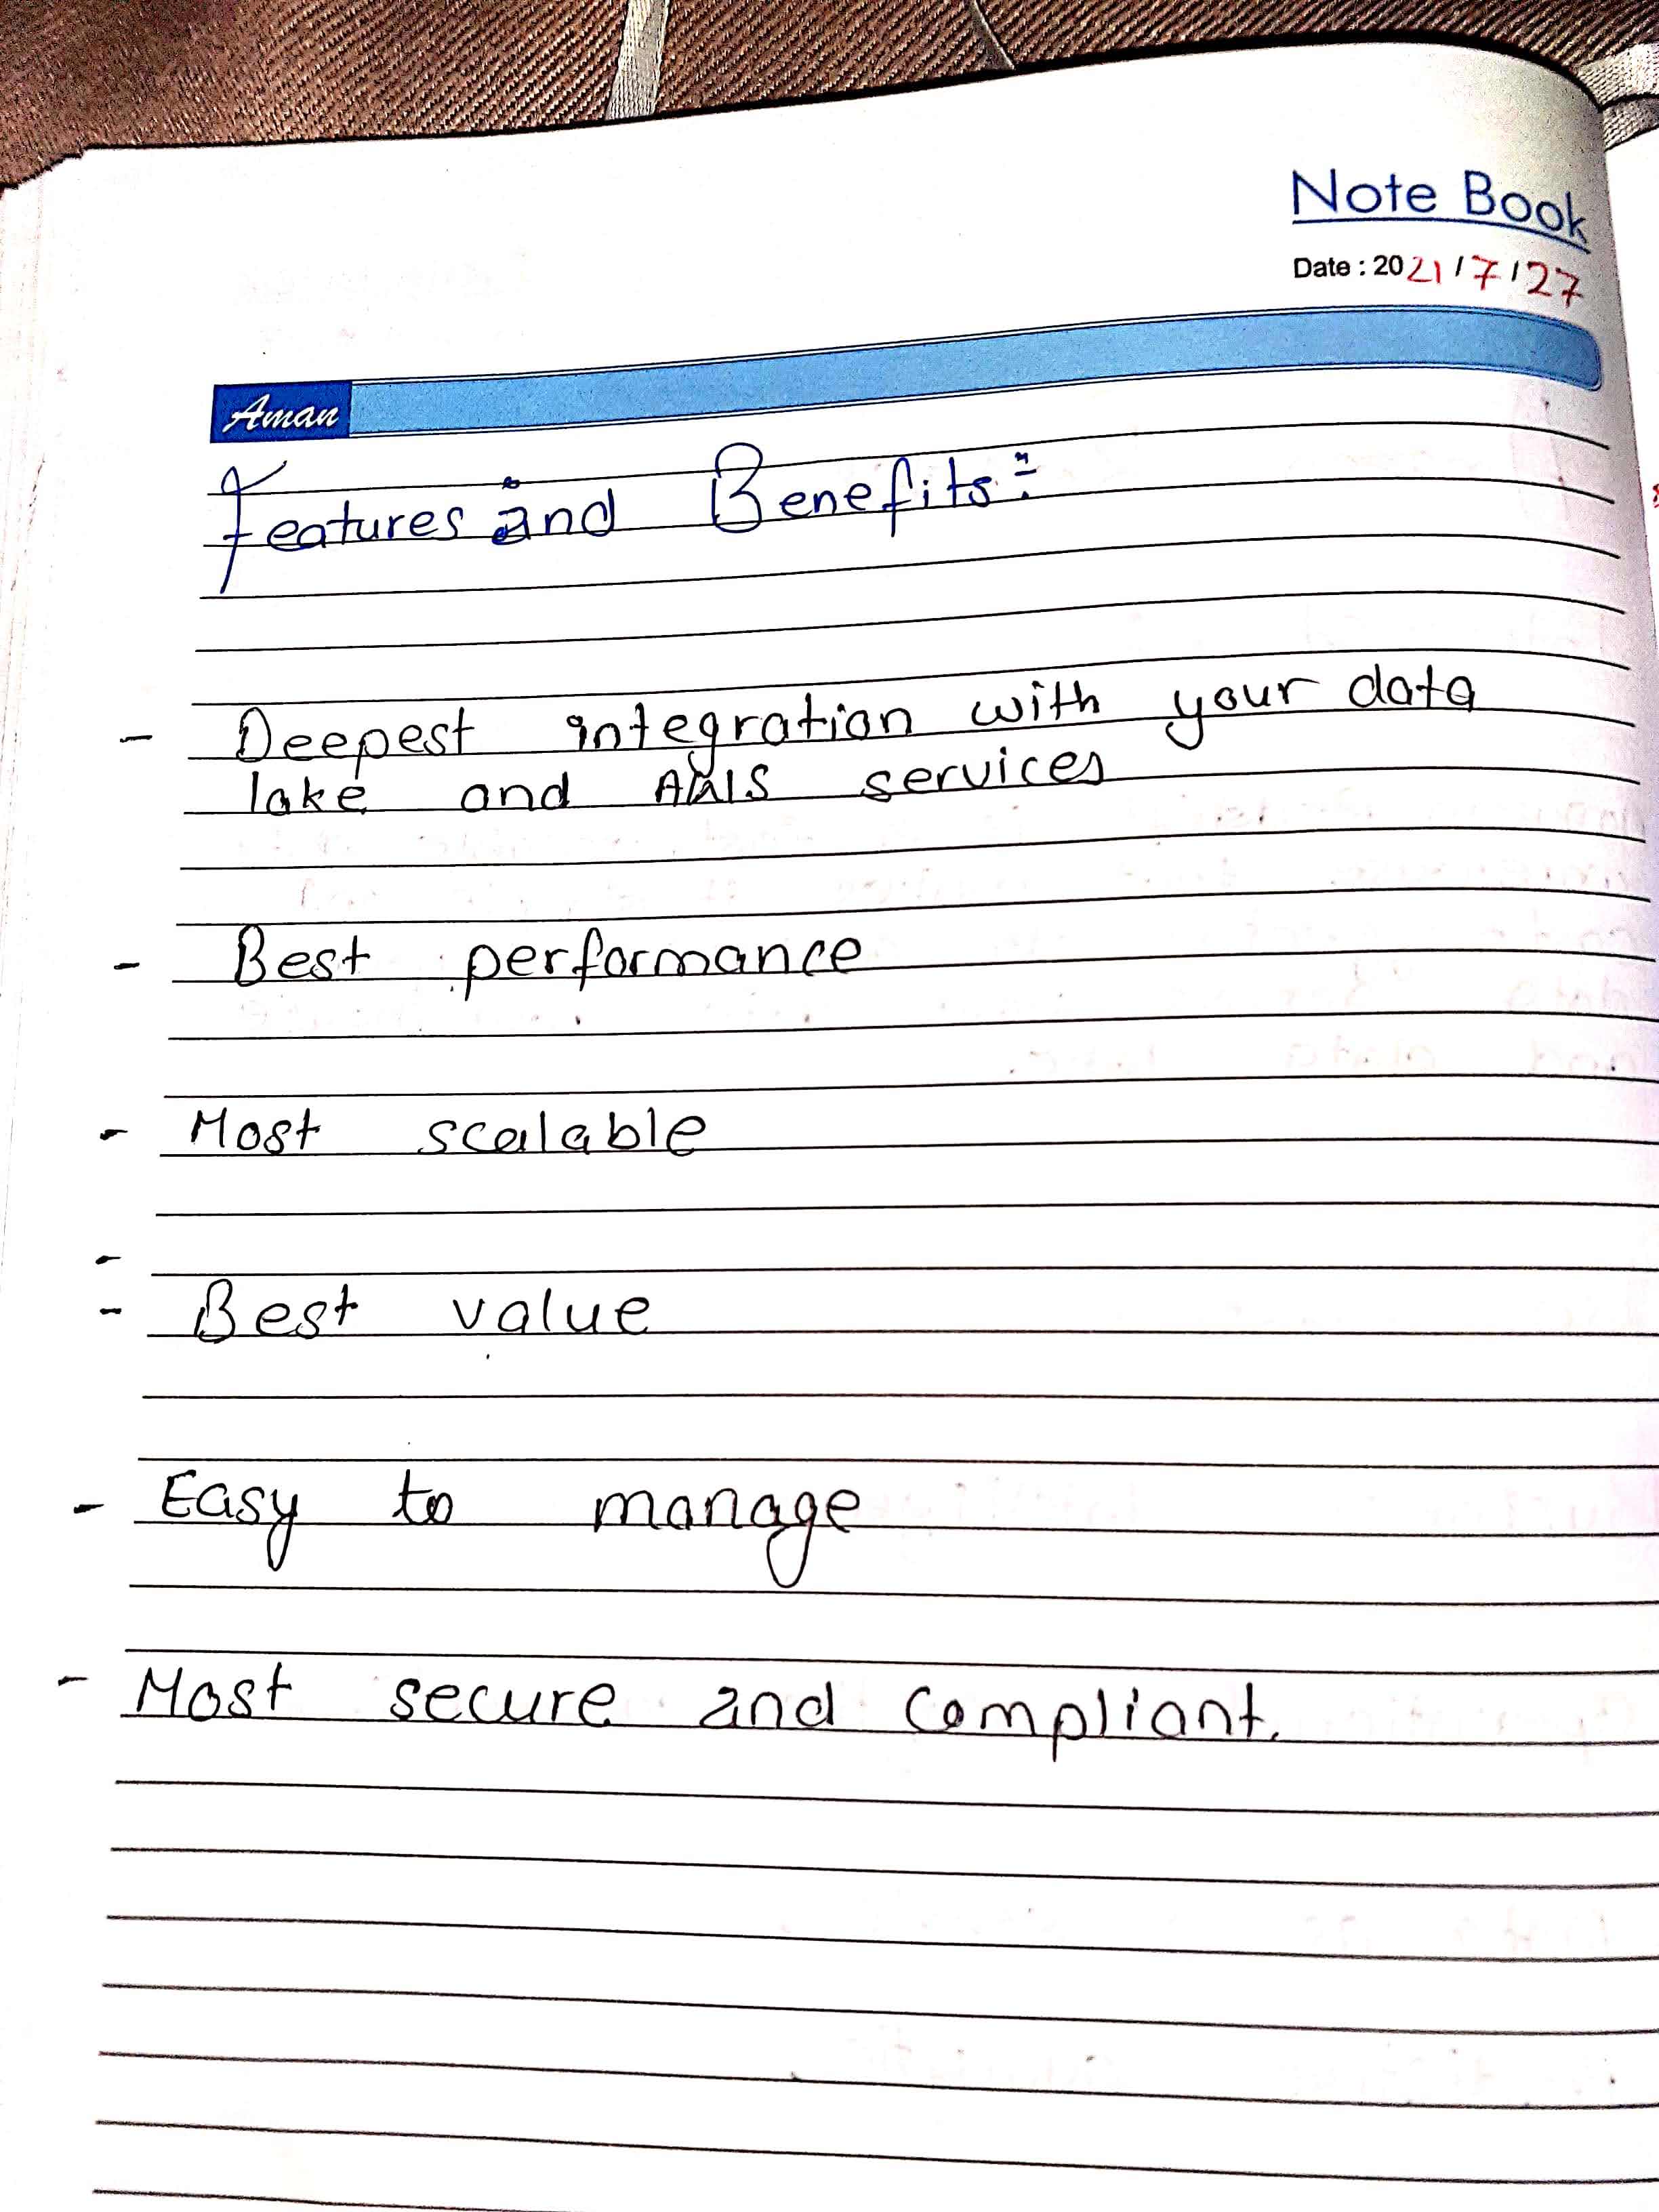 Note Book
Date : 2021/7/27
Aman
Features and Benefits:
- Deepest integration with your data
lake and AWS services
- Best performance
- Most scalable
-
- Best value
- Easy to manage
- Most secure and compliant.